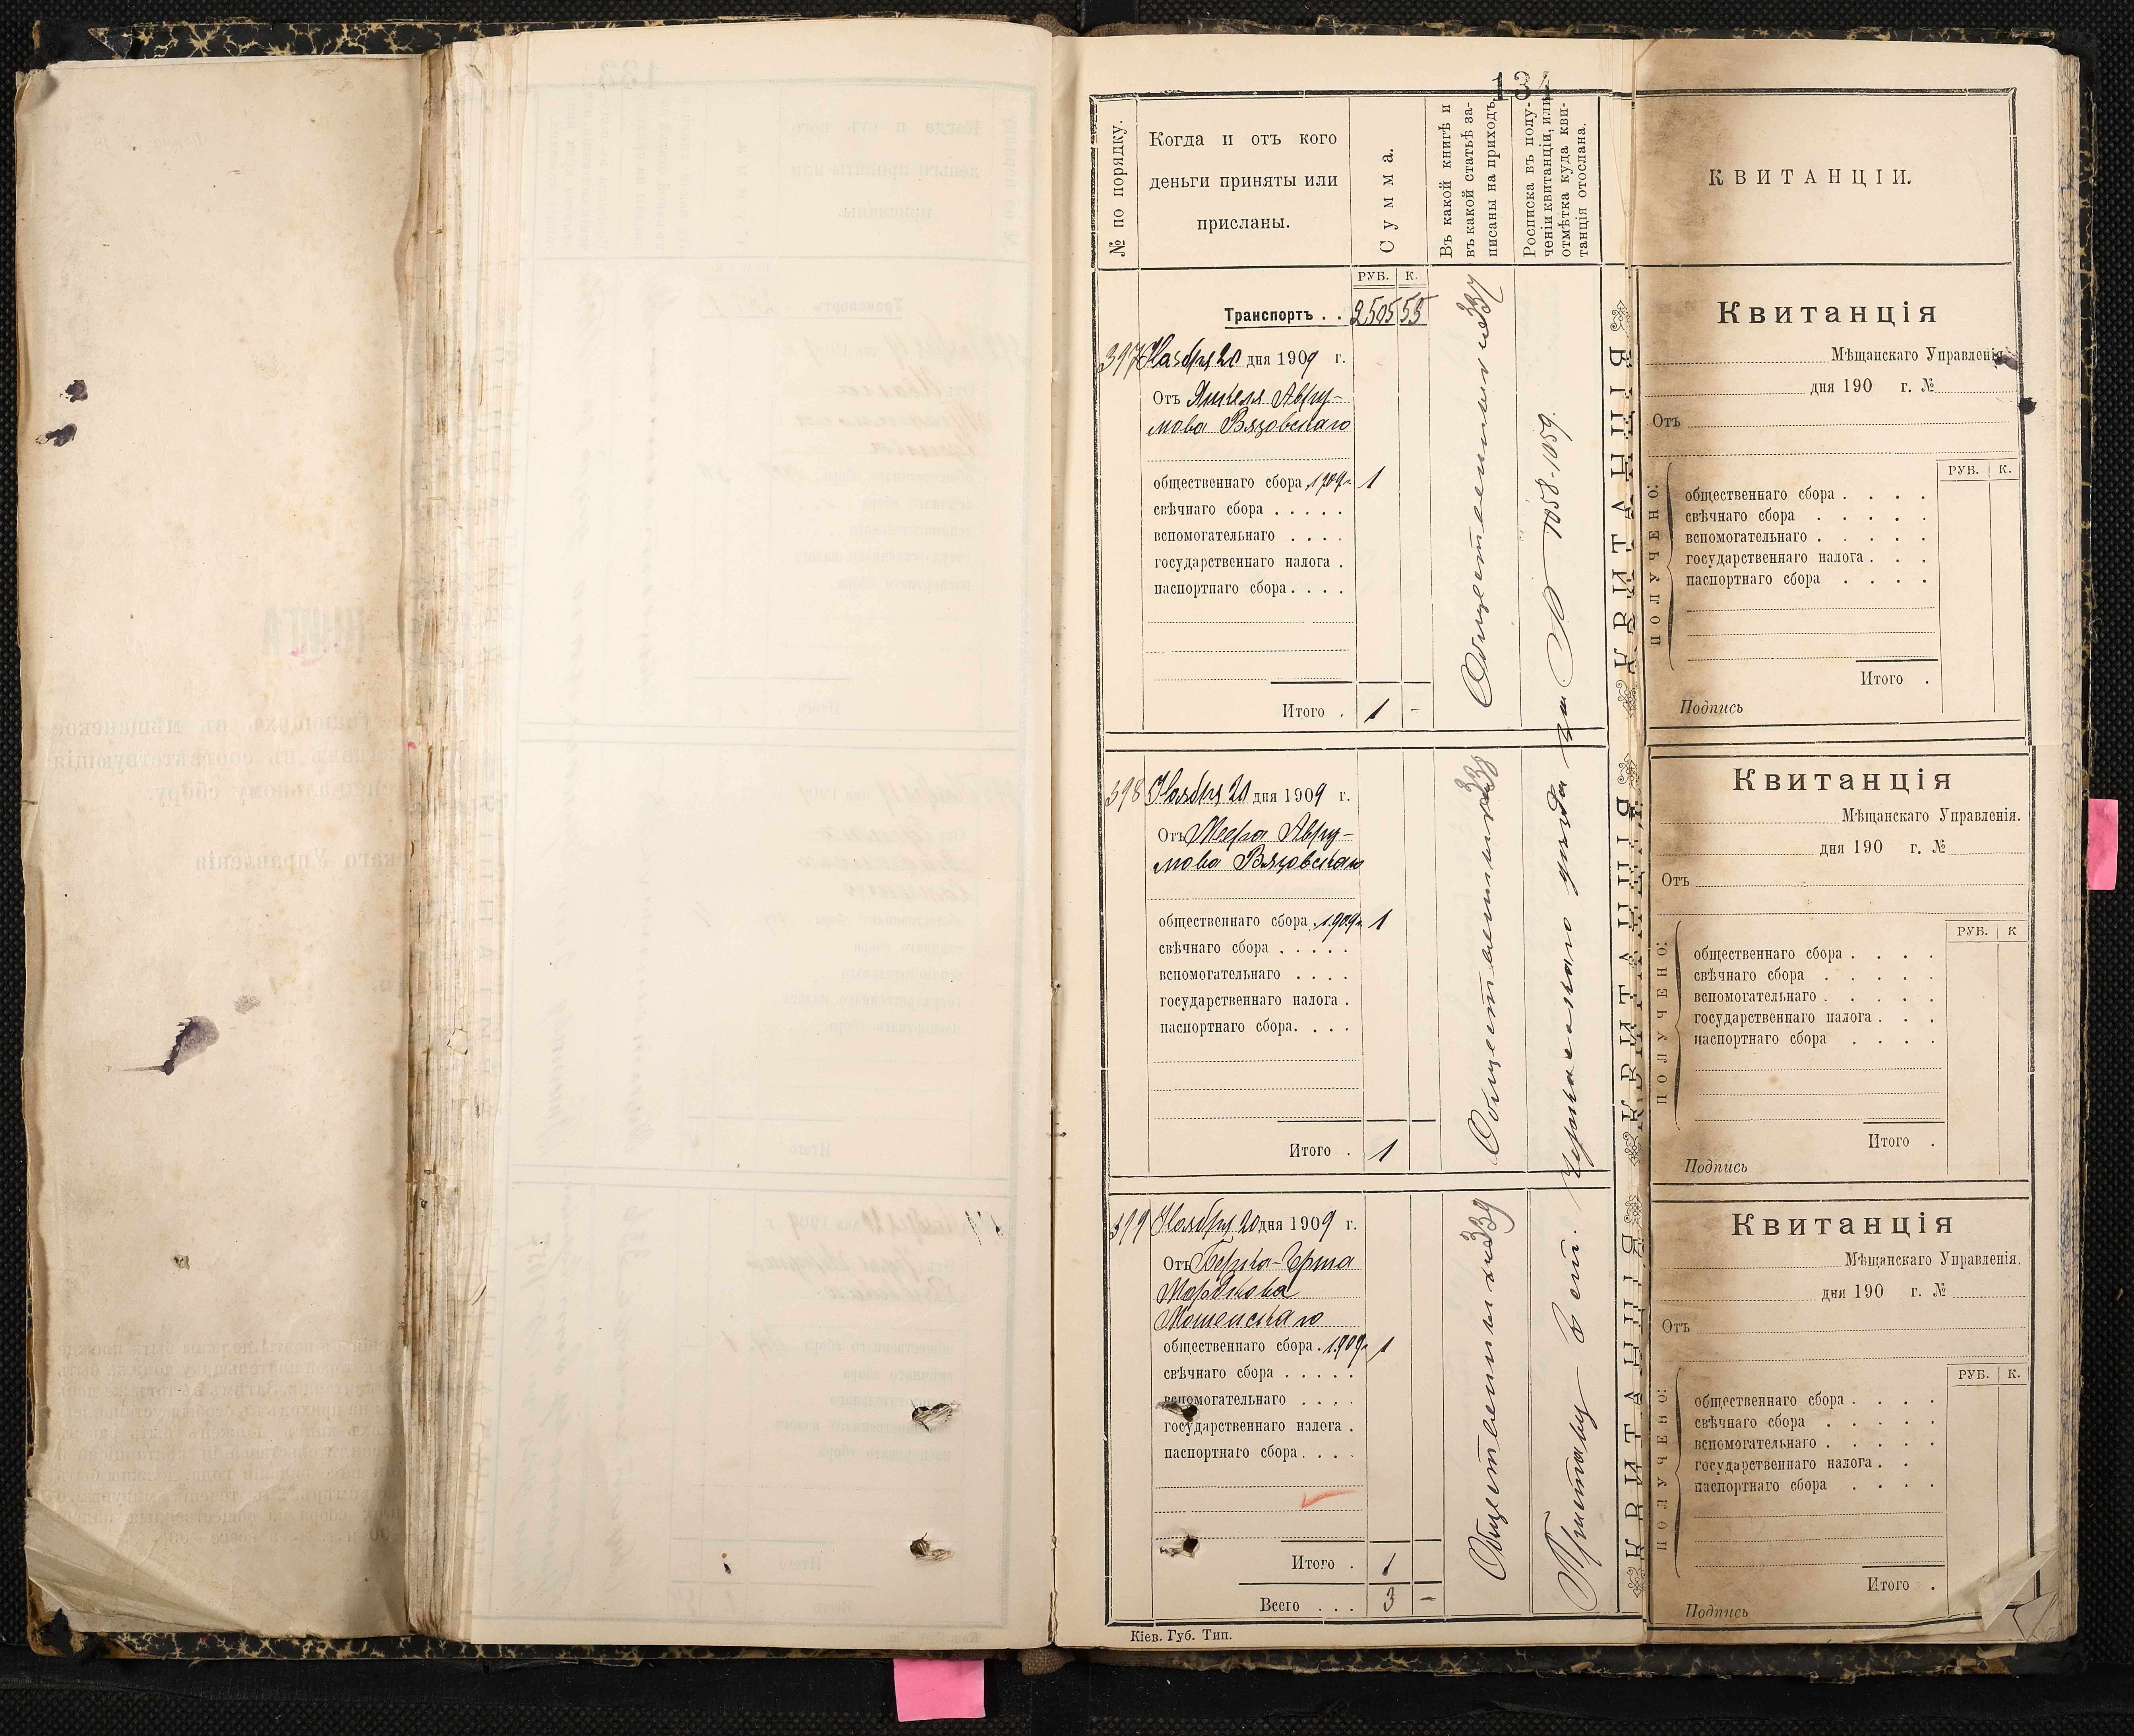 134
№ по порядку.
Когда и отъ кого
деньги приняты или
присланы.
Сумма.
Въ какой книгѣ и
въ какой статьѣ за-
писаны на приходъ.
Росписка въ полу-
ченіи квитанціи, или
отмѣтка куда кви-
танція отослана.
РУБ. К.
Транспортъ . . 2505 55
397 Ноября 20 дня 1909 г.
Отъ Янкеля Авру-
мова Вязовскаго
общественнаго сбора 1909 г. 1
свѣчнаго сбора . . . . .
вспомогательнаго . . . .
государственнаго налога .
паспортнаго сбора . . . .
Итого . 1 -
337
1058-1059.
КВИТАНЦІЯ
398 Ноября 20 дня 1909 г.
Отъ Меера Авру-
мова Вязовскаго
общественнаго сбора . 1909 г. 1
свѣчнаго сбора . . . . .
вспомогательнаго . . . .
государственнаго налога .
паспортнаго сбора . . . .
Итого . 1
338
КВИТАНЦІЯ
399 Ноября 20 дня 1909 г.
Отъ Берка-Ерша
Мордкова
Мошенскаго
общественнаго сбора . 1909 г. 1
свѣчнаго сбора . . . . .
вспомогательнаго . . . .
государственнаго налога .
паспортнаго сбора . . . .
Итого . 1
Всего . . . 3 -
339
Приставу 2 ст. Черкасскаго уѣзда
КВИТАНЦІЯ
Кіев. Губ. Тип.
КВИТАНЦІИ.
Квитанція
Мѣщанскаго Управленія
дня 190 г. №
Отъ
ПОЛУЧЕНО:
РУБ. К.
общественнаго сбора . . . .
свѣчнаго сбора . . . . .
вспомогательнаго . . . . .
государственнаго налога . . .
паспортнаго сбора . . . .
Итого .
Подпись
Квитанція
Мѣщанскаго Управленія.
дня 190 г. №
Отъ
ПОЛУЧЕНО:
РУБ. К
общественнаго сбора . . . .
свѣчнаго сбора . . . . .
вспомогательнаго . . . . .
государственнаго налога . . .
паспортнаго сбора . . . .
Итого .
Подпись
Квитанція
Мѣщанскаго Управленія.
дня 190 г. №
Отъ
ПОЛУЧЕНО:
РУБ. К.
общественнаго сбора . . . .
свѣчнаго сбора . . . . .
вспомогательнаго . . . . .
государственнаго налога . .
паспортнаго сбора . . . .
Итого .
Подпись